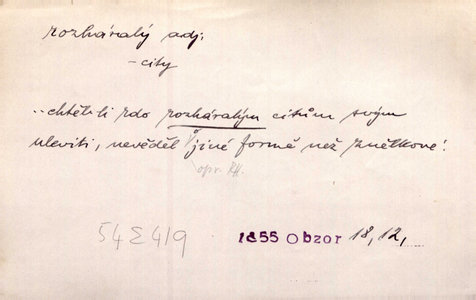 rozháraný adj.
- city
..chtěl-li kdo rozháraným citům svým
uleviti, nevěděl jiné formě než znělkové!
opr. RH.
54 Σ 419
1855 Obzor 18, 12,